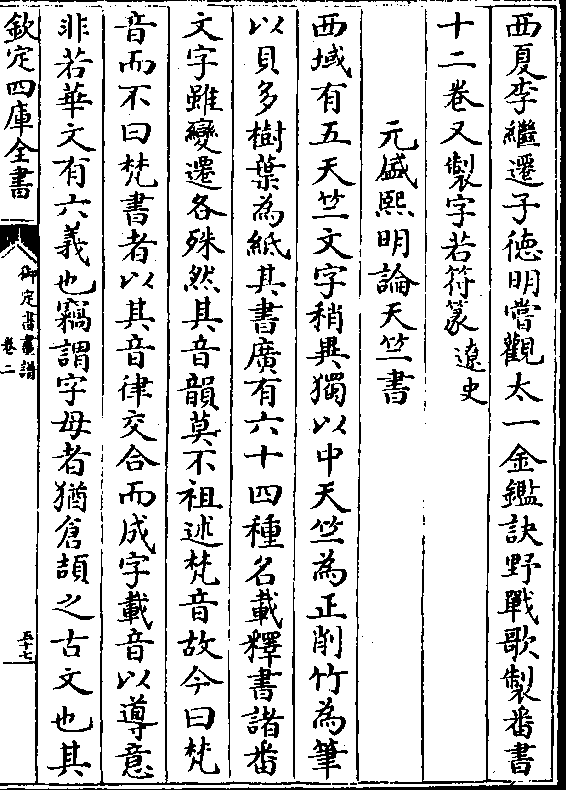 西夏李繼遷子德明嘗觀太一金鑑訣野戰歌製番書
十二卷又製字若符篆遼史
元盛熙明論天竺書
西域有五天竺文字稍異獨以中天竺為正削竹為筆
以貝多樹葉為紙其書廣有六十四種名載釋書諸番
文字雖變遷各殊然其音韻莫不祖述梵音故今曰梵
音而不曰梵書者以其音律交合而成字載音以導意
非若華文有六義也竊謂字母者猶倉頡之古文也其
欽定四庫全書
御定書畫譜
卷二
五十七